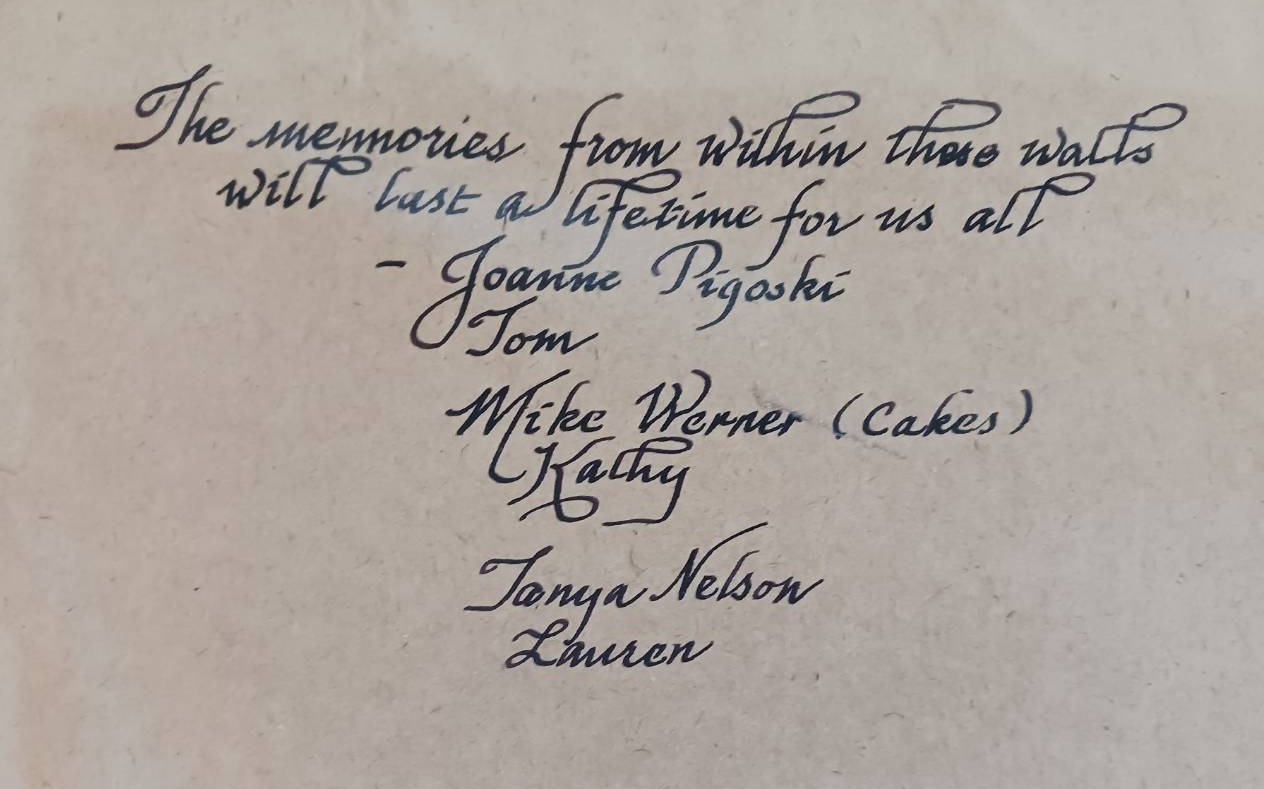 The memories from within these walls
will last a lifetime for us all
- Joanne Pigoski
Tom
Mike Werner (Cakes)
Kathy
Tanya Nelson
Lauren